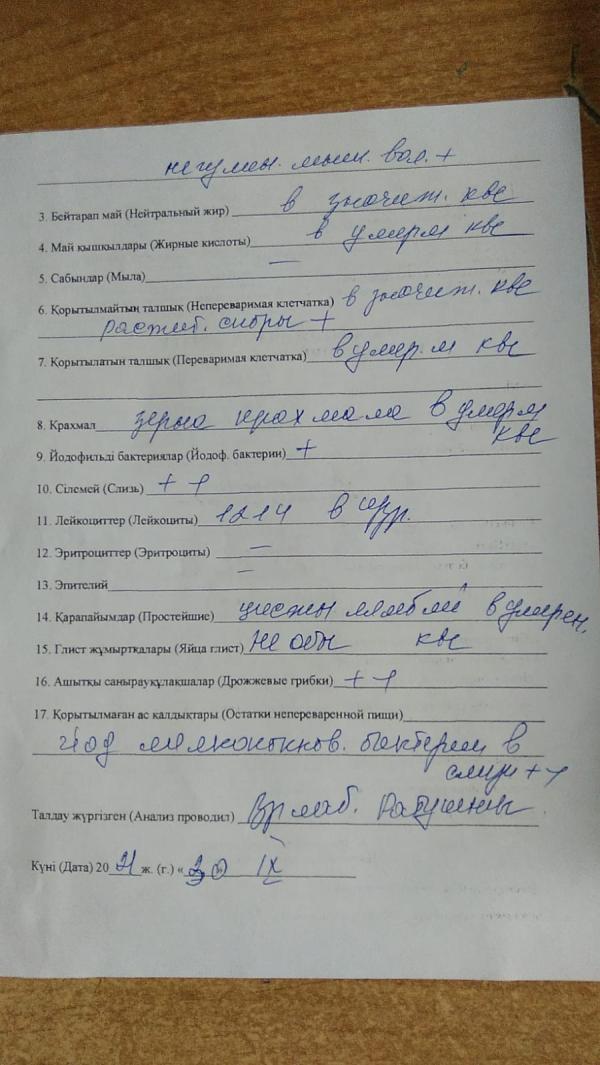 мыш. вол. +
3. Бейтарап май (Нейтральный жир) в значит. кве
4. Май қышқылдары (Жирные кислоты) в умерм кве
5. Сабындар (Мыла) —
6. Қорытылмайтын талшық (Непереваримая клетчатка) в значит. кве
растит. споры +
7. Қорытылатын талшық (Переваримая клетчатка) в умер. м кве
8. Крахмал зерна крахмала в умерм
кве
9. Йодофильді бактериялар (Йодоф. бактерии) +
10. Сілемей (Слизь) + +
11. Лейкоциттер (Лейкоциты) в
12. Эритроциттер (Эритроциты) —
13. Эпителий —
14. Қарапайымдар (Простейшие) цисты лямблий в умерен.
15. Глист жұмыртқалары (Яйца глист) Не обн кве
16. Ашытқы саңырауқұлақшалар (Дрожжевые грибки) + +
17. Қорытылмаған ас қалдықтары (Остатки непереваренной пищи)
Йод мелкококков. бактерии в
слизи + +
Талдау жүргізген (Анализ проводил) Вр лаб.
Күні (Дата) 20 21 ж. (г.) « 30 » IX